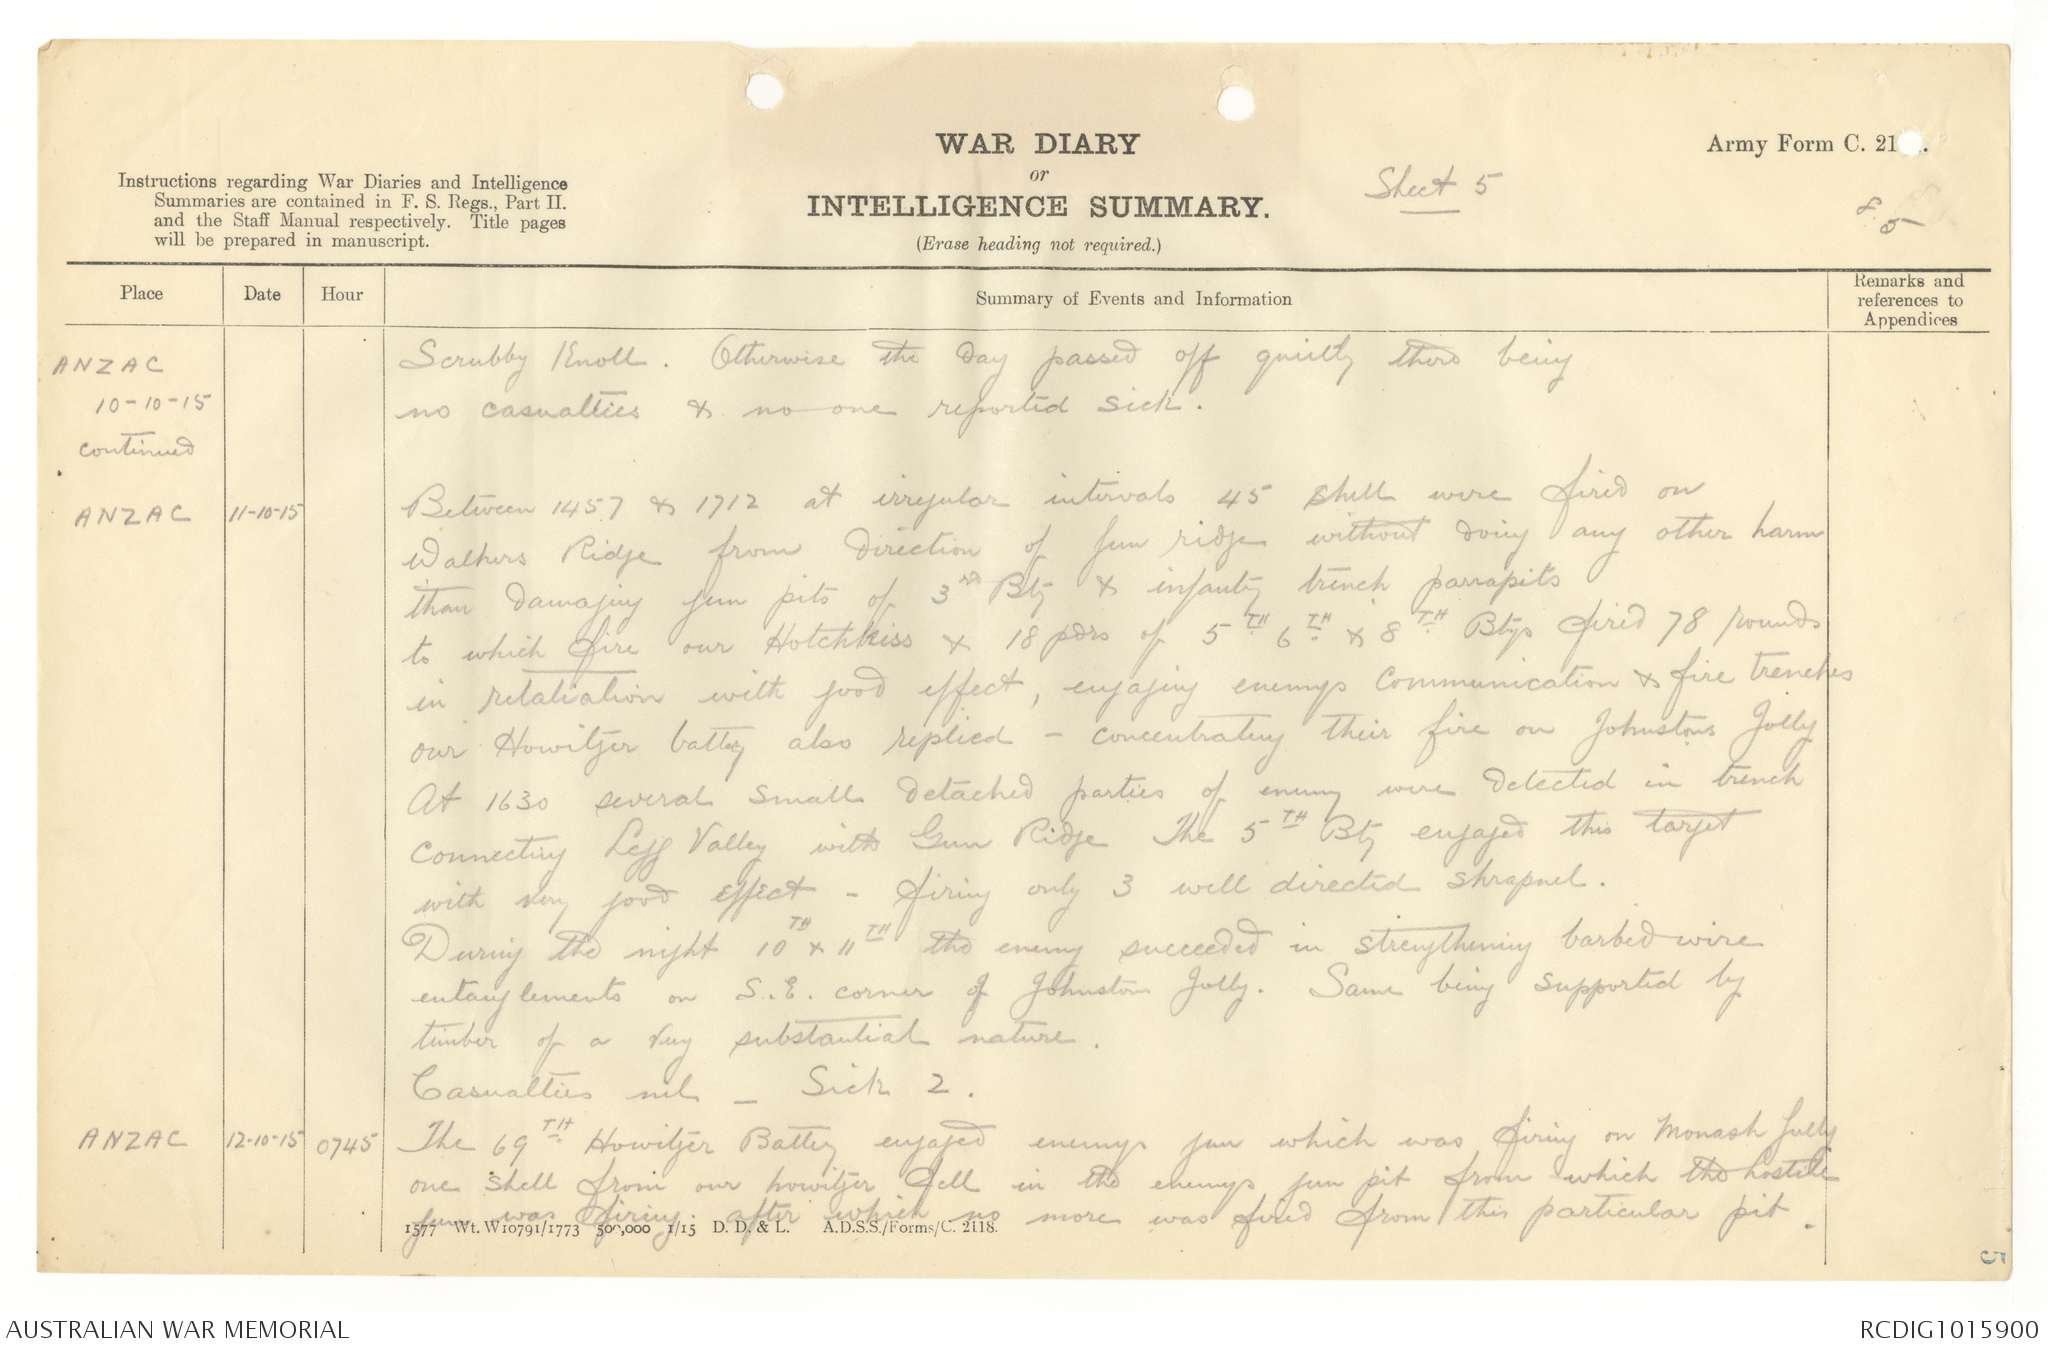 WAR DIARY
or
INTELLIGENCE SUMMARY.
(Erase heading not required.)
Army Form C. 21
Instructions regarding War Diaries and Intelligence
Summaries are contained in F. S. Regs., Part II.
and the Staff Manual respectively. Title pages
will be prepared in manuscript.
Sheet 5
Place Date Hour Summary of Events and Information Remarks and
references to
Appendices
ANZAC
10-10-15
continued
Scrubby Knoll. Otherwise the day passed off quietly there being
no casualties & no one reported sick.
ANZAC 11-10-15 Between 1457 & 1712 at irregular intervals 45 shell were fired on
Walkers Ridge from direction of Gun ridge without doing any other harm
than damaging gun pits of 3rd Bty & infantry trench parrapits
to which fire our Hotchkiss & 18 pdrs of 5TH 6TH & 8TH Btys fired 78 rounds
in retaliation with good effect, engaging enemys communication & fire trenches
our Howitzer battery also replied - concentrating their fire on Johnstons Jolly
At 1630 several small detached parties of enemy were detected in trench
connecting Legg Valley with Gun Ridge The 5TH Bty engaged this target
with very good effect - firing only 3 well directed shrapnel.
During the night 10TH & 11TH the enemy succeeded in strengthening barbed wire
entanglements on S.E. corner of Johnstons Jolly. Same being supported by
timber of a very substantial nature.
Casualties nil - Sick 2.
ANZAC 12-10-15 0745 The 69TH Howitzer Battery engaged enemys gun which was firing on Monash Gully
one shell from our howitzer fell in the enemys gun pit from which the hostile
gun was firing. after which no more was fired from this particular pit.
1577 Wt. W10791/1773 500,000 1/15 D. D. & L. A.D.S.S./Forms/C. 2118.
5
AUSTRALIAN WAR MEMORIAL
RCDIG1015900